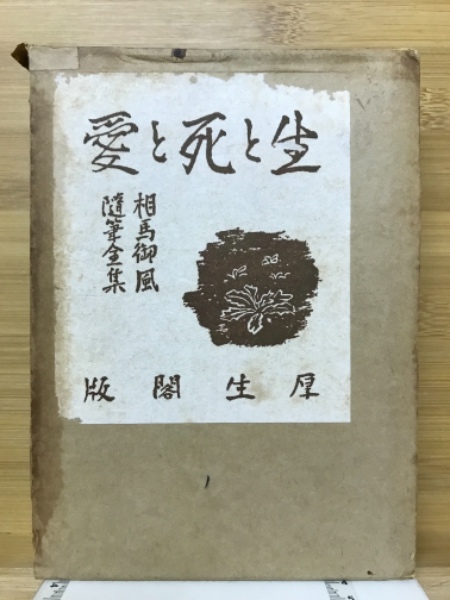 生と死と愛
相馬御風
隨筆全集
厚生閣版